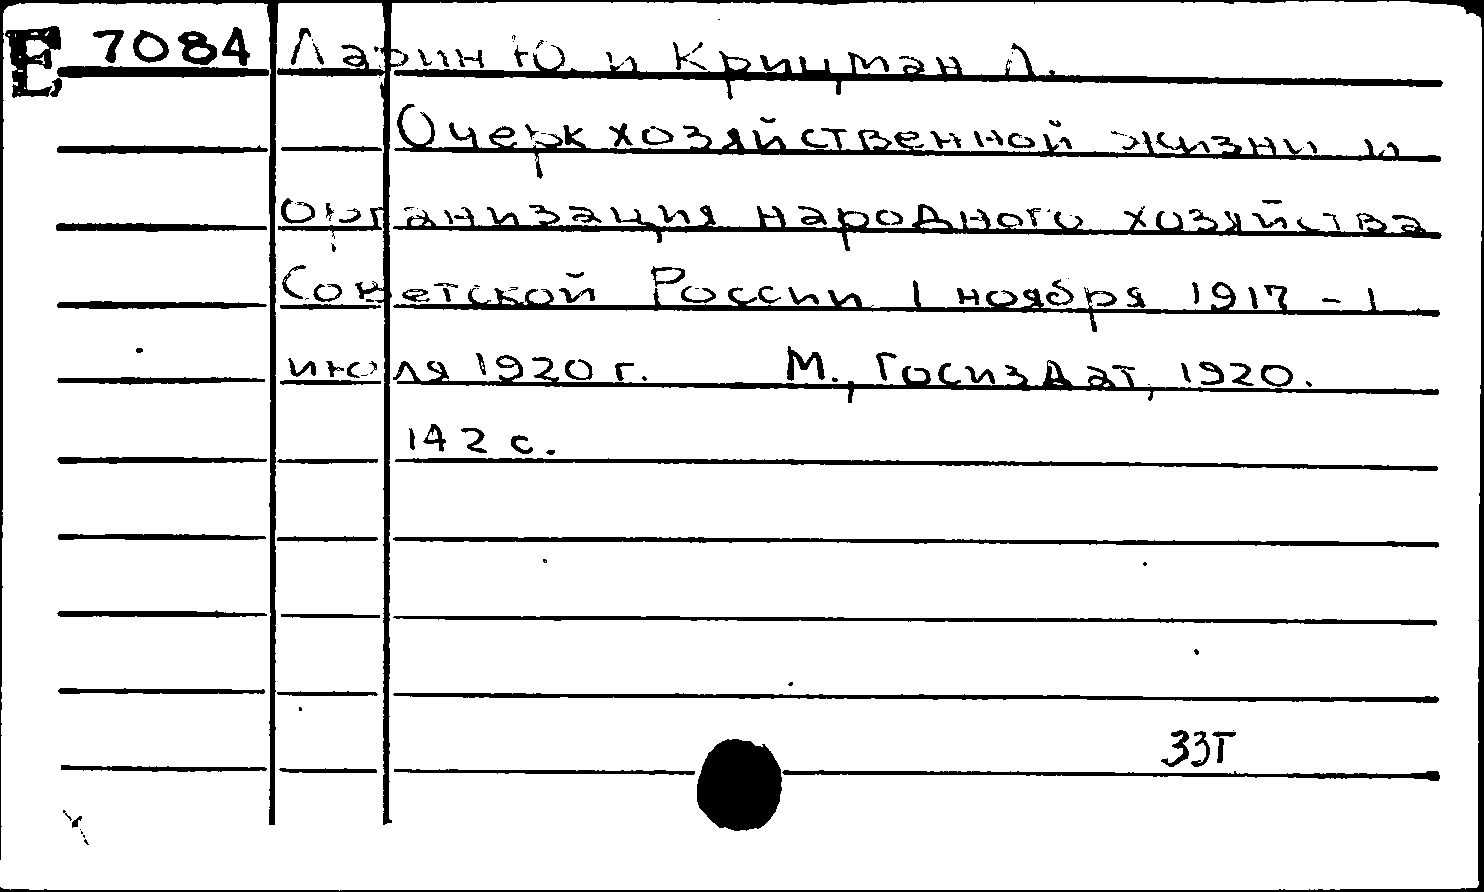 E 7084 Ларин Ю. и Крицман Л.
Очерк хозяйственной жизни и
организация народного хозяйства
Советской России 1 ноября 1917 - 1
июля 1920 г. М., Госиздат, 1920.
142 с.
33Т